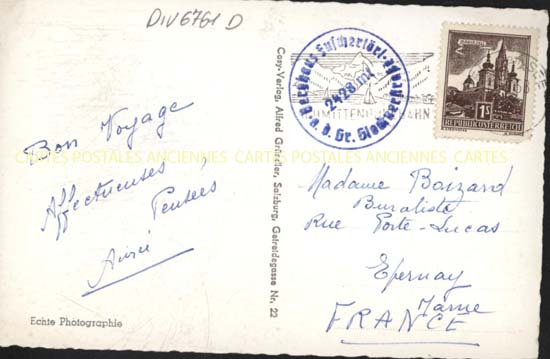 DIV6761 D
Bon Voyage
Affectueuses
Pensées
Echte Photographie
Cosy-Verlag, Alfred Gründler, Salzburg, Getreidegasse Nr. 22
2428 m
a. d. Gr.
MITTEN
AHN
2
1S
REPUBLIK ÖSTERREICH
CARTES POSTALES ANCIENNES CARTES POSTALES ANCIENNES CARTES
Madame Boizard
Buraliste
Rue Porte-Lucas
Epernay
Marne
FRANCE